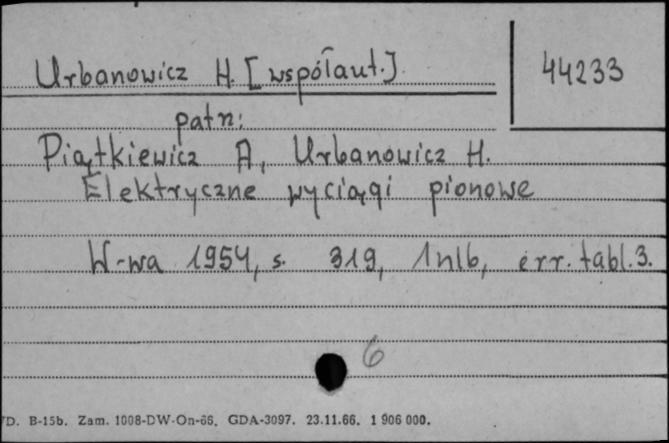 Urbanowicz H. [współaut.]
44233
patrz:
Piątkiewicz A, Urbanowicz H.
Elektryczne wyciągi pionowe
W-wa 1954, s. 319, 1nlb, err. tabl. 3.
6
D. B-15b. Zam. 1008-DW-On-66. GDA-3097. 23.11.66. 1 906 000.